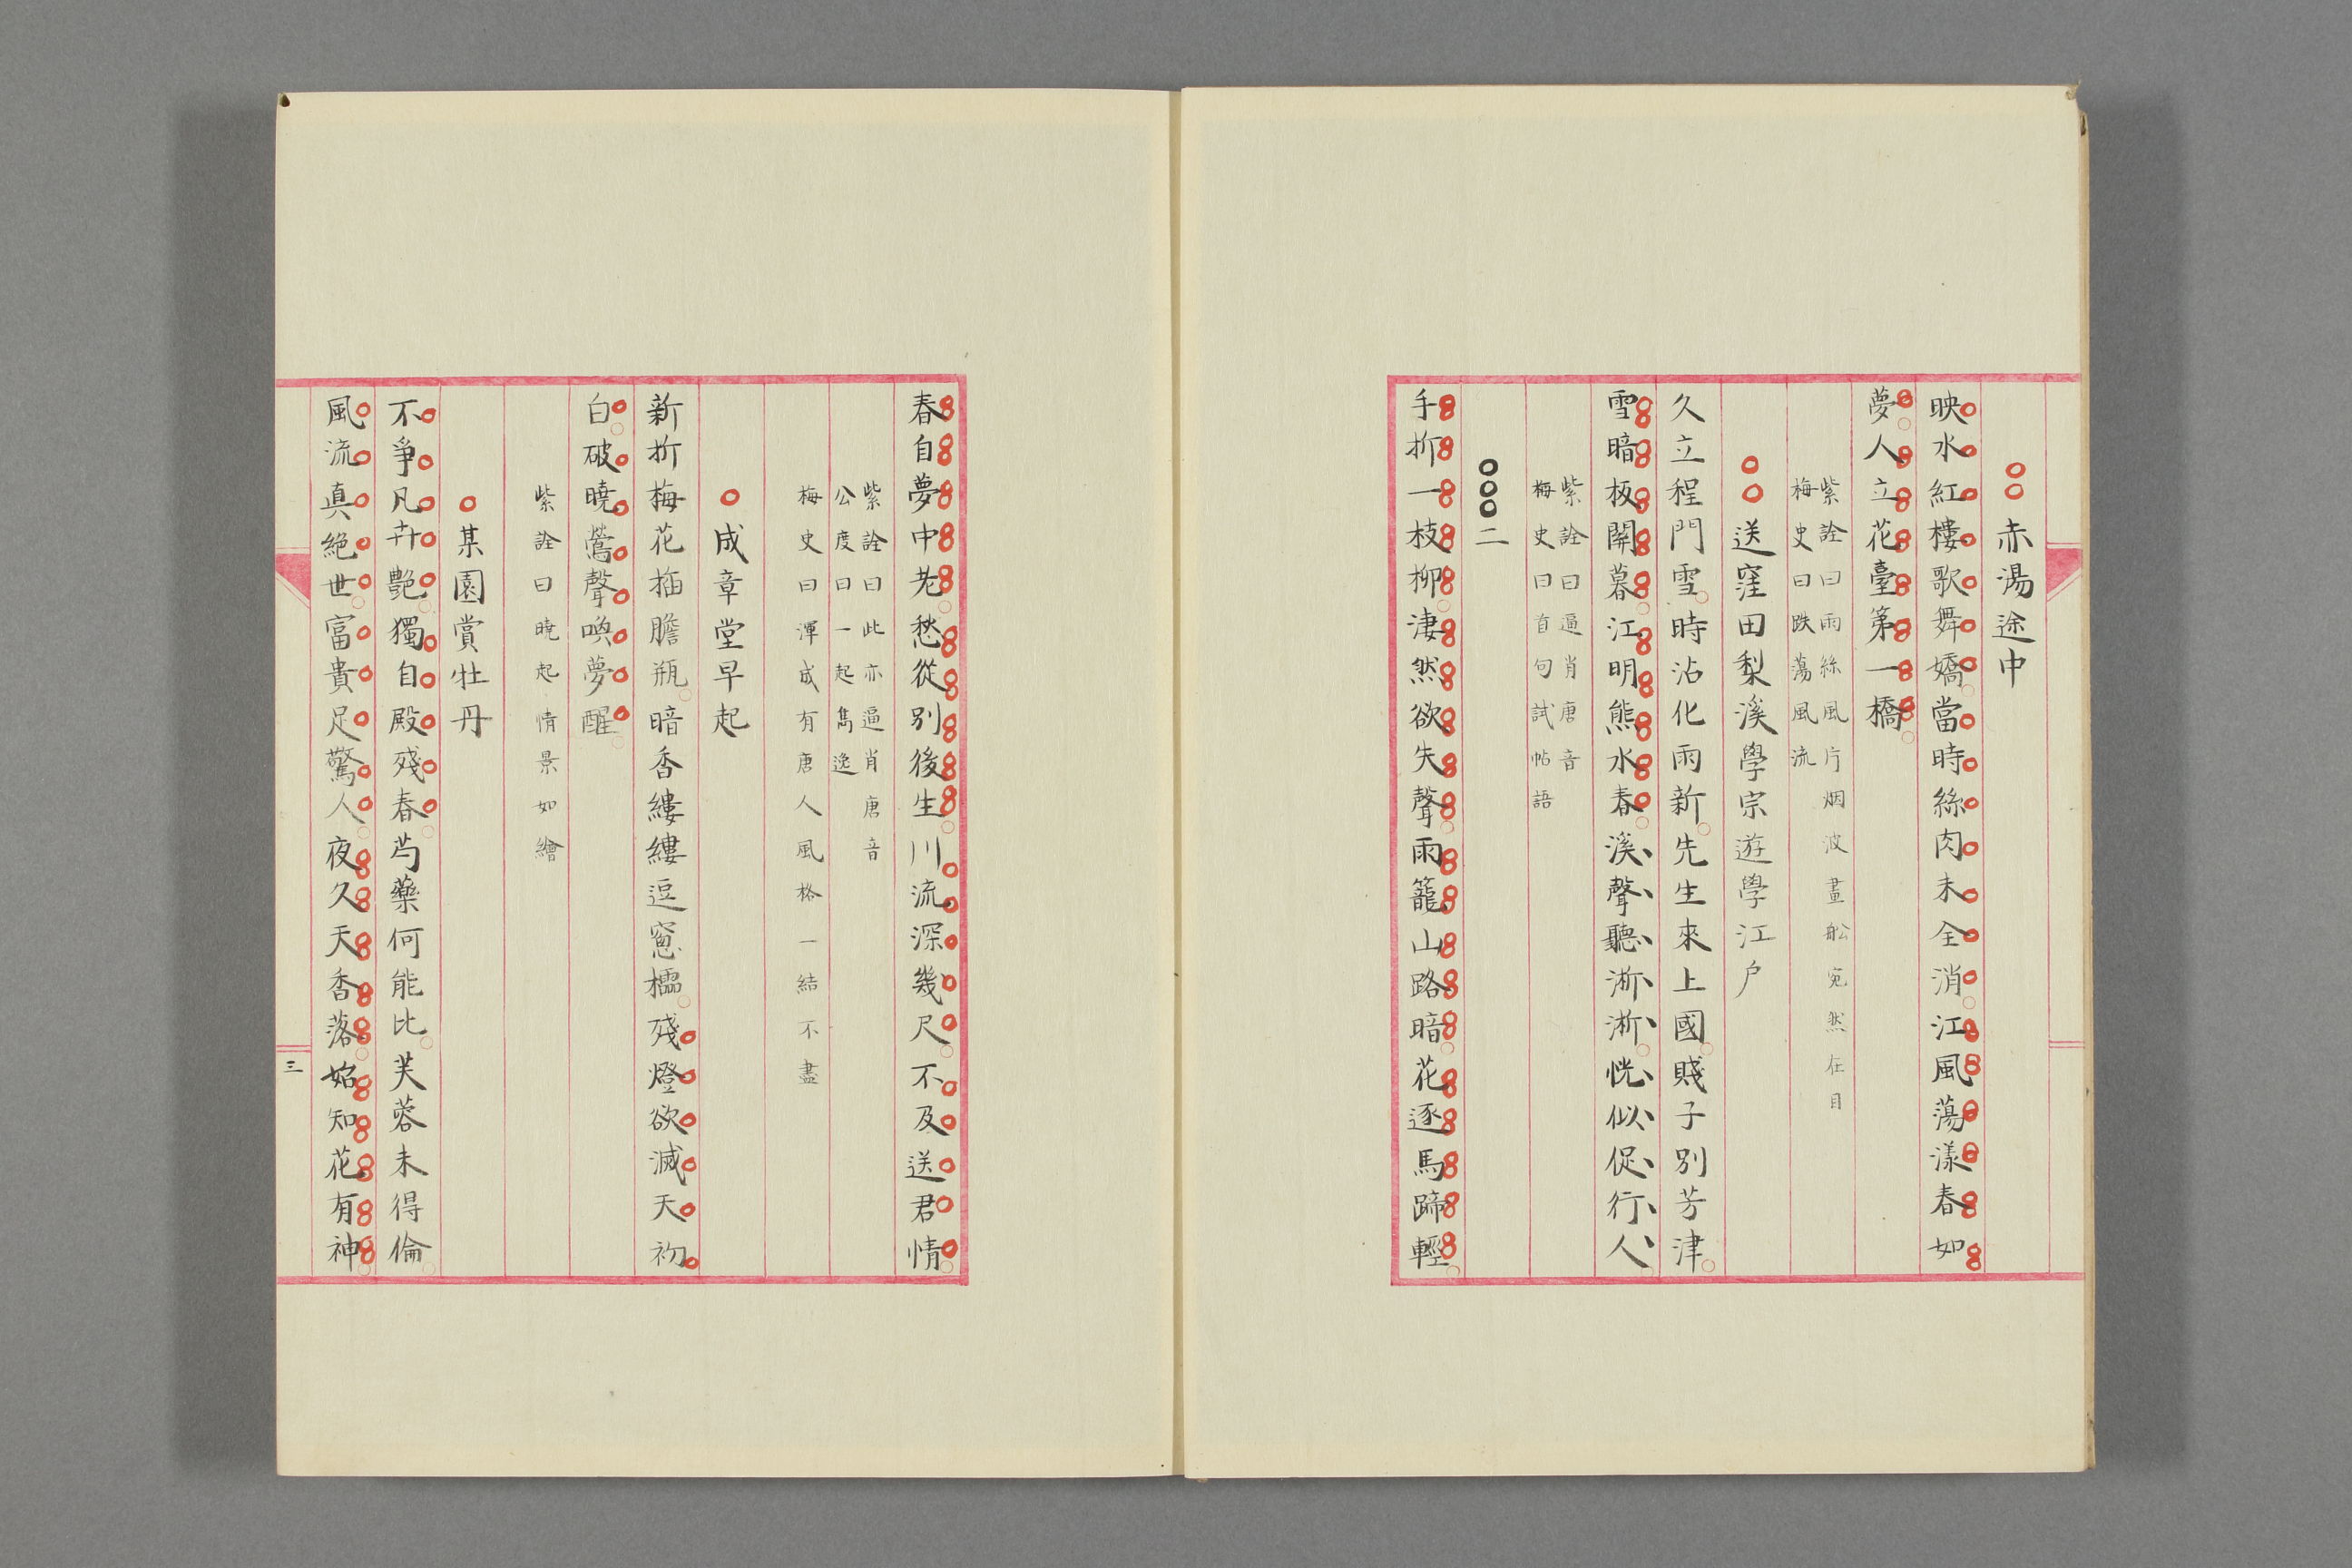 赤湯途中
映水紅樓歌舞嬌當時絲肉未全消江風蕩漾春如
夢人立花臺第一橋
紫詮曰雨絲風片烟波畫舩宛然在目
梅史曰跌蕩風流
送窪田梨溪學宗遊學江户
久立程門雪時沾化雨新先生來上國賤子別芳津
雪暗板關暮江明熊水春溪聲聽淅淅恍似促行人
紫詮曰逼肖唐音
梅史曰首句試帖語
二
手折一枝柳淒然欲失聲雨籠山路暗花逐馬蹄輕
春自夢中老愁從別後生川流深幾尺不及送君情
紫詮曰此亦逼肖唐音
公度曰一起雋逸
梅史曰渾成有唐人風格一結不盡
成章堂早起
新折梅花插膽瓶暗香縷縷逗窻櫺殘燈欲滅天初
白破曉鶯聲喚夢醒
紫詮曰曉起情景如繪
某園賞牡丹
不爭凡卉艷獨自殿殘春芍藥何能比芙蓉未得倫
風流真絕世富貴足驚人夜久天香落始知花有神
三